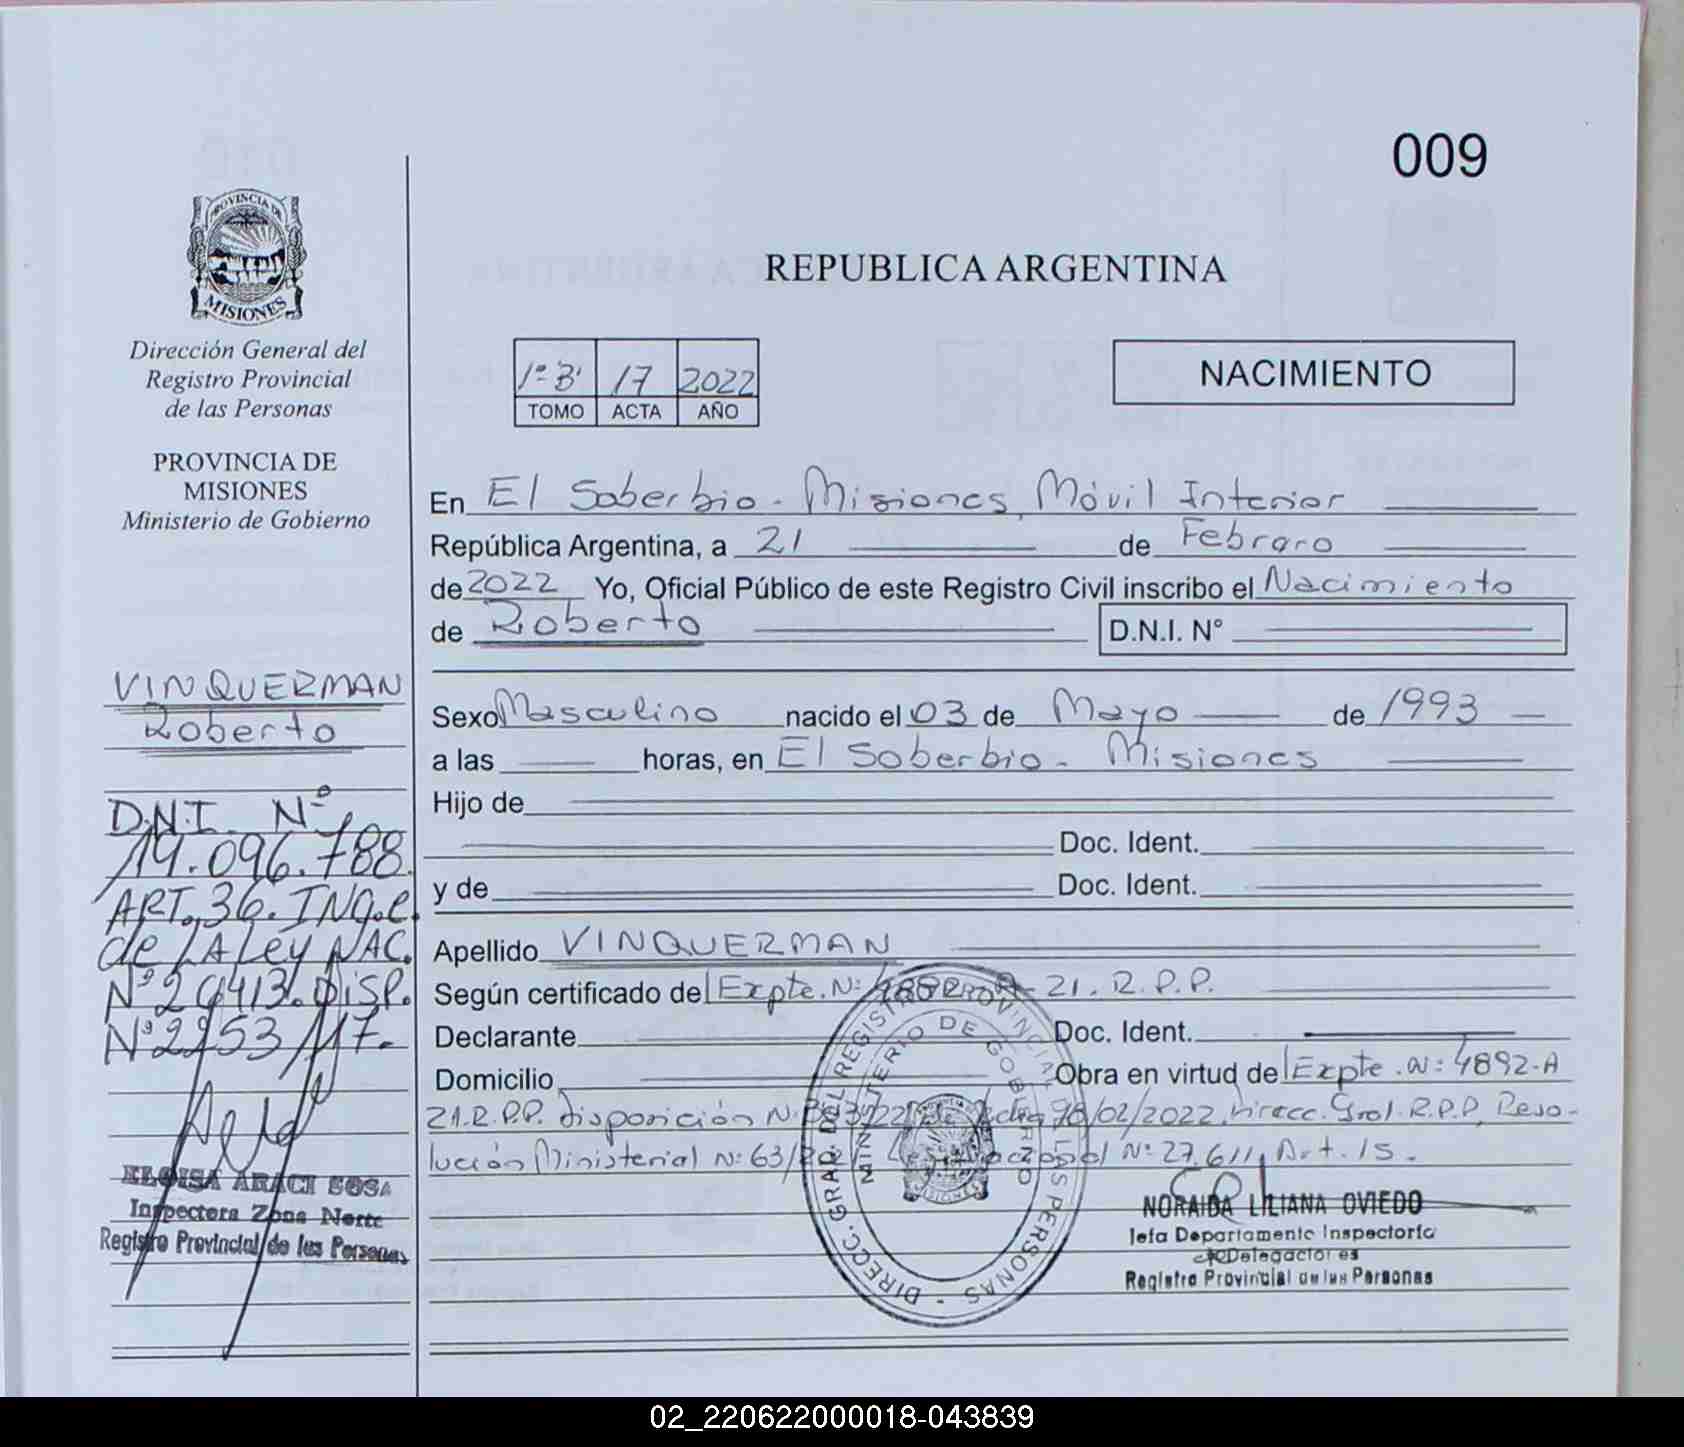 009
PROVINCIA DE
MISIONES
Dirección General del
Registro Provincial
de las Personas
PROVINCIA DE
MISIONES
Ministerio de Gobierno
REPUBLICA ARGENTINA
1º B' 17 2022
TOMO ACTA AÑO
NACIMIENTO
En El Soberbio - Misiones, Móvil Interior
República Argentina, a 21 de Febrero
de 2022 Yo, Oficial Público de este Registro Civil inscribo el Nacimiento
de Roberto D.N.I. N°
Sexo Masculino nacido el 03 de Mayo de 1993
a las horas, en El Soberbio - Misiones
Hijo de
Doc. Ident.
y de Doc. Ident.
Apellido VINQUERMAN
Según certificado del Expte. Nº 21. R.P.P.
Declarante Doc. Ident.
Domicilio Obra en virtud del Expte. Nº: 4892-A
21.R.P.P. Disposición 02/2022. Direcc. Gral. R.P.P, Reso-
lución Ministerial Nº: 63/ Nº: 27.611, Art. 15.
VINQUERMAN
Roberto
D.N.I. Nº
19.096.788
ART. 36. INC.e.
de LA Ley NAC.
Nº 26413. DiSP.
Nº 2253/17.
ELOISA ARACI SOSA
Inspectora Zona Norte
Registro Provincial de las Personas
DIRECC. GRAD. DEL REGISTRO PROVINCIAL DE LAS PERSONAS -
MINISTERIO DE GOBIERNO
NORAIDA LILIANA OVIEDO
Jefa Departamento Inspectoría
Registro Provincial de las Personas
02_220622000018-043839